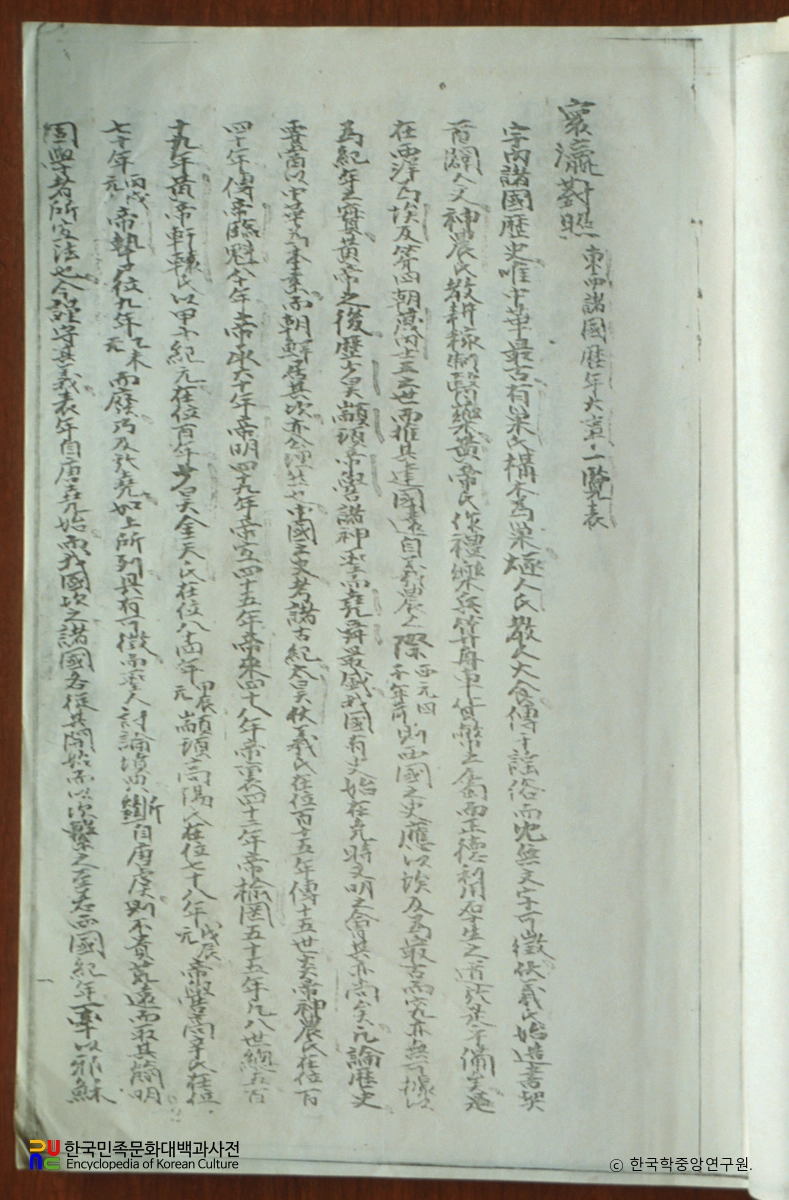 寰瀛對照 東西諸國歷年大事一覽表
宇內諸國歷史唯中華最古有巢氏構木爲巢燧人氏敎人火食傳于謠俗而然無文字可徵伏羲氏始造書契
首闢人文神農氏敎耕稼制醫藥黃帝氏作禮樂兵算舟車貨幣之屬而正德利用厚生之道於是乎備矣
在西洋爲埃及 而推其建國 自羲農之際 西元四千年前 則西國之史應以埃及爲最古而 亦無可據以
爲紀年之 黃帝之後歷少昊顓頊帝嚳諸神聖而堯舜最盛我國有史始在堯時文明之會其亦尙矣凡論歷史
當以中華爲本 而朝鮮居其次亦公 也中國之史考諸古紀太昊伏羲氏在位百十五年傳十五世炎帝神農氏在位百
四十年傳帝臨魁八十年帝承六十年帝明四十九年帝宜四十五年帝來四十八年帝裏四十三年帝楡罔五十五年凡八世總五百
十九年黃帝軒轅氏以甲子紀元在位百年少昊金天氏在位八十四年 元甲辰 顓頊高陽氏在位七十八年 元戊辰 帝嚳高辛氏在位
七十年 元丙戌 帝摯子位九年 元乙未 而歷 及於堯如上所列具有可徵而聖人討論墳典斷自唐虞則不貴荒遠而取其簡明
固學者所宜法也今謹 其義表年自唐堯始而我國次之諸國各從其開始而以次 之至若西國紀年率以耶穌
한국민족문화대백과사전
Encyclopedia of Korean Culture
© 한국학중앙연구원.